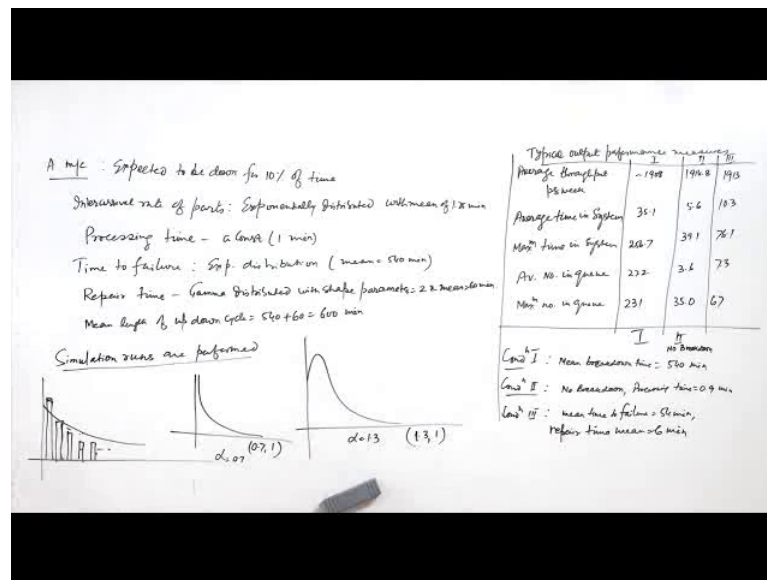 A m/c : Expected to be down for 10% of time
Interarrival rate of parts : Exponentially distributed with mean of min
Processing time - a const (1 min)
Time to failure : Exp. distribution ( mean = 540 min)
Repair time - Gamma distributed with shape parameter = 2 & mean = 60 min
Mean length of up down cycle = 540 + 60 = 600 min
Simulation runs are performed
α = 0.7
(0.7, 1)
α = 1.3
(1.3, 1)
Typical output performance measures
I II III
Average throughput per week 1908 1914.8 1913
Average time in System 35.1 5.6 10.3
Maxm time in System 256.7 39.1 76.1
Av. No. in queue 3.6 7.3
Maxm no. in queue 231 35.0 67
I II
No Breakdown
Condn I : Mean breakdown time = 540 min
Condn II : No Breakdown, Processing time = 0.9 min
Condn III : mean time to failure = 54 min,
repair time mean = 6 min